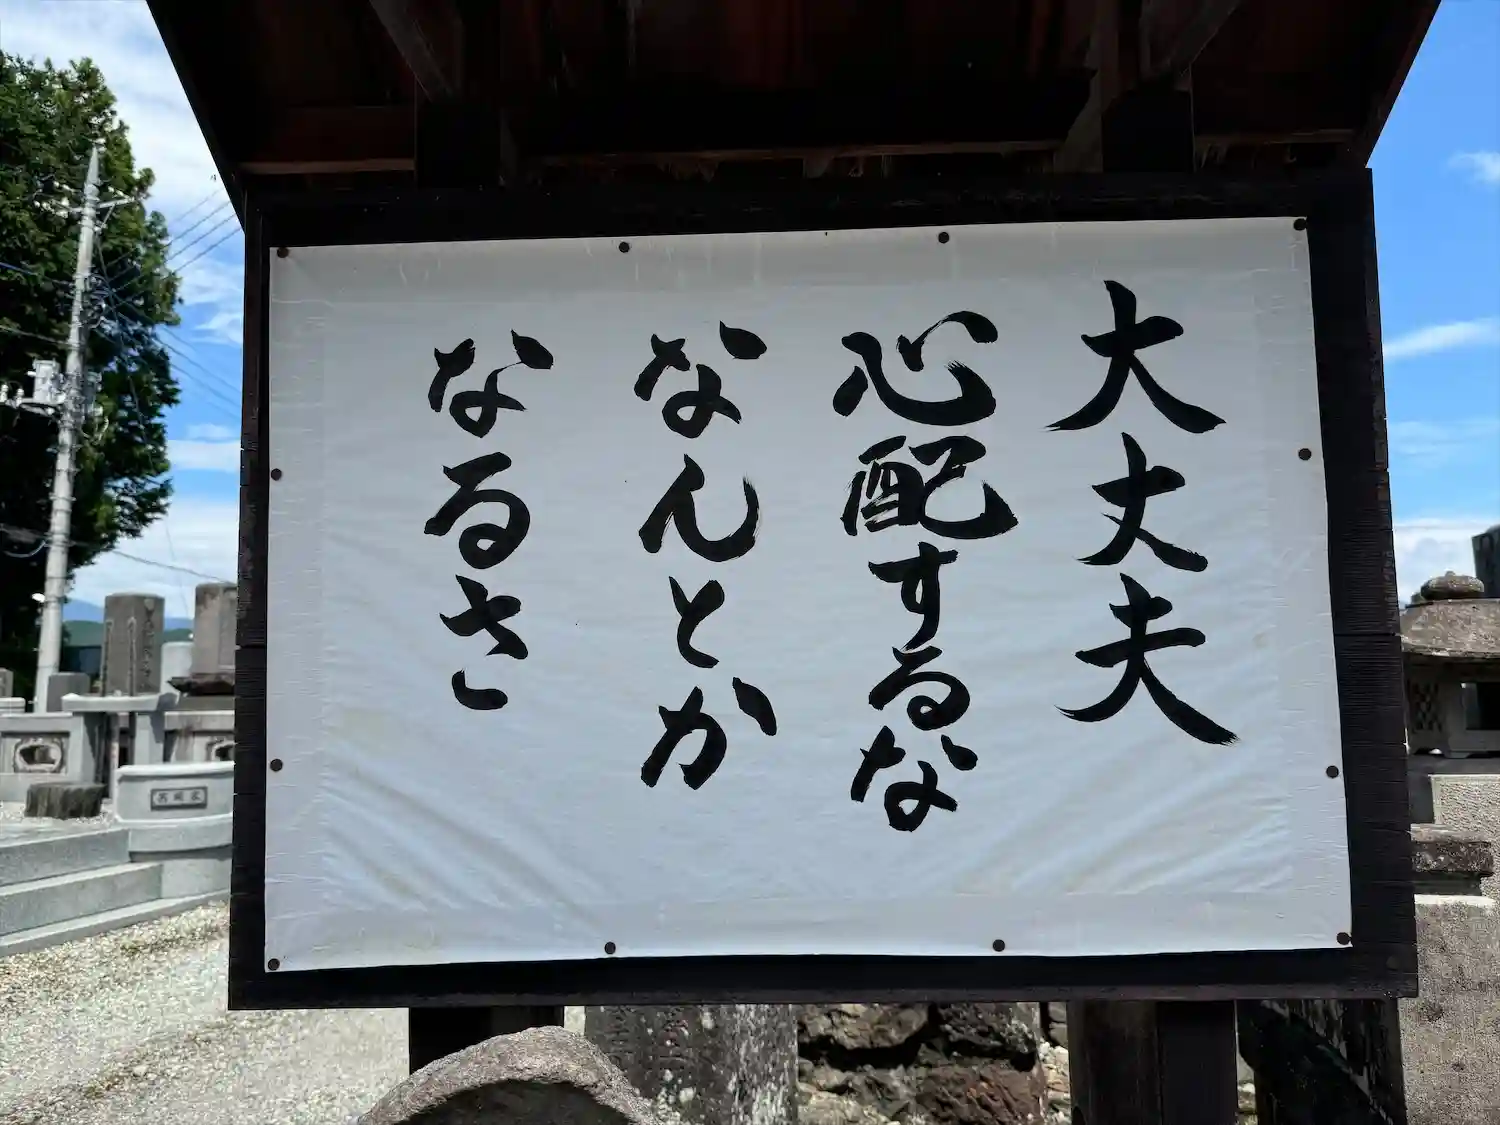 大丈夫
心配するな
なんとか
なるさ